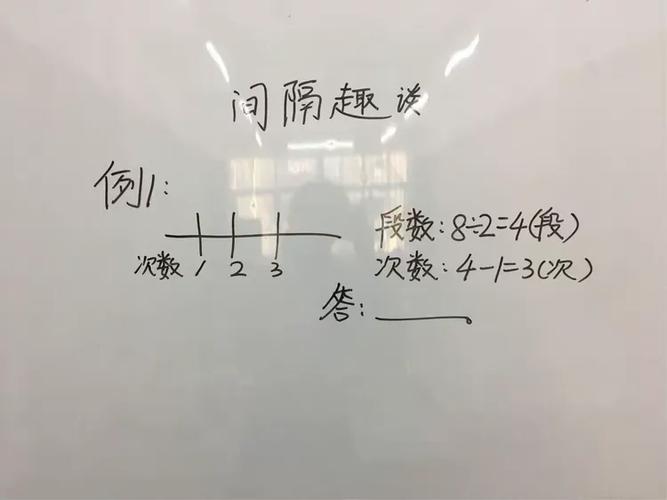 间隔趣谈
例1:
段数:8÷2=4(段)
次数 1 2 3
次数:4-1=3(次)
答: